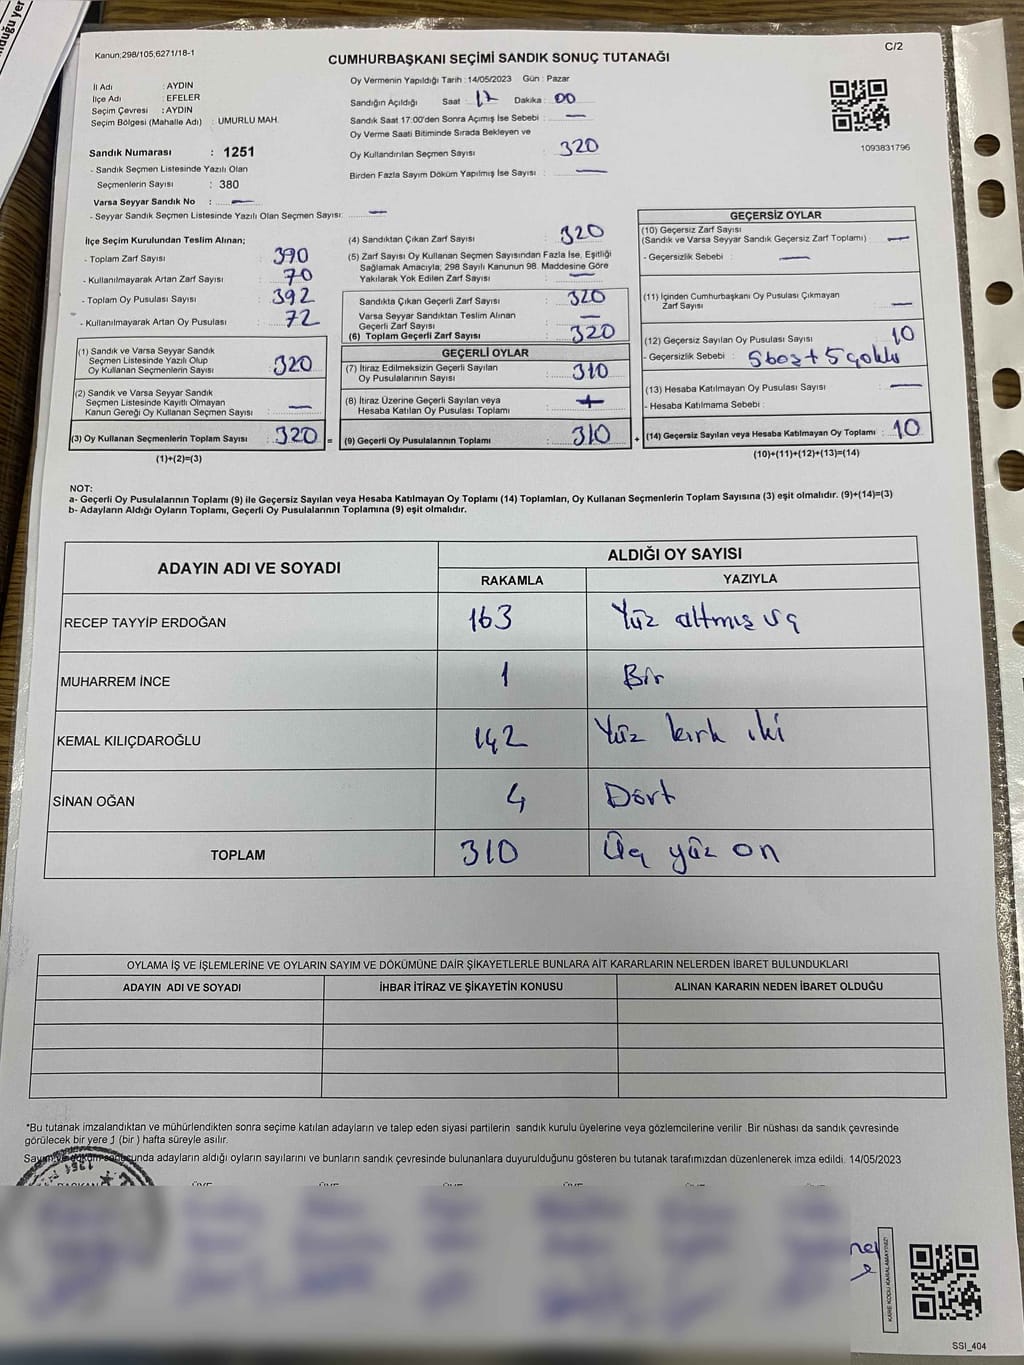 duğu yer
Kanun;298/105,6271/18-1
C/2
CUMHURBAŞKANI SEÇİMİ SANDIK SONUÇ TUTANAĞI
İl Adı : AYDIN
İlçe Adı : EFELER
Seçim Çevresi : AYDIN
Seçim Bölgesi (Mahalle Adı) : UMURLU MAH.
Sandık Numarası : 1251
- Sandık Seçmen Listesinde Yazılı Olan
Seçmenlerin Sayısı : 380
Varsa Seyyar Sandık No : —
- Seyyar Sandık Seçmen Listesinde Yazılı Olan Seçmen Sayısı: —
Oy Vermenin Yapıldığı Tarih : 14/05/2023 Gün : Pazar
Sandığın Açıldığı Saat : 17 Dakika : 00
Sandık Saat 17:00'den Sonra Açımış İse Sebebi : —
Oy Verme Saati Bitiminde Sırada Bekleyen ve
Oy Kullandırılan Seçmen Sayısı : 320
Birden Fazla Sayım Döküm Yapılmış İse Sayısı : —
1093831796
İlçe Seçim Kurulundan Teslim Alınan;
- Toplam Zarf Sayısı : 390
- Kullanılmayarak Artan Zarf Sayısı : 70
- Toplam Oy Pusulası Sayısı : 392
- Kullanılmayarak Artan Oy Pusulası : 72
(1) Sandık ve Varsa Seyyar Sandık
Seçmen Listesinde Yazılı Olup
Oy Kullanan Seçmenlerin Sayısı : 320
(2) Sandık ve Varsa Seyyar Sandık
Seçmen Listesinde Kayıtlı Olmayan
Kanun Gereği Oy Kullanan Seçmen Sayısı : —
(3) Oy Kullanan Seçmenlerin Toplam Sayısı : 320 =
(1)+(2)=(3)
(4) Sandıktan Çıkan Zarf Sayısı : 320
(5) Zarf Sayısı Oy Kullanan Seçmen Sayısından Fazla İse, Eşitliği
Sağlamak Amacıyla; 298 Sayılı Kanunun 98. Maddesine Göre
Yakılarak Yok Edilen Zarf Sayısı : —
Sandıkta Çıkan Geçerli Zarf Sayısı : 320
Varsa Seyyar Sandıktan Teslim Alınan
Geçerli Zarf Sayısı : —
(6) Toplam Geçerli Zarf Sayısı : 320
GEÇERLİ OYLAR
(7) İtiraz Edilmeksizin Geçerli Sayılan
Oy Pusulalarının Sayısı : 310
(8) İtiraz Üzerine Geçerli Sayılan veya
Hesaba Katılan Oy Pusulası Toplamı : +
(9) Geçerli Oy Pusulalarının Toplamı : 310 +
GEÇERSİZ OYLAR
(10) Geçersiz Zarf Sayısı
(Sandık ve Varsa Seyyar Sandık Geçersiz Zarf Toplamı) : —
- Geçersizlik Sebebi : —
(11) İçinden Cumhurbaşkanı Oy Pusulası Çıkmayan
Zarf Sayısı : —
(12) Geçersiz Sayılan Oy Pusulası Sayısı : 10
- Geçersizlik Sebebi : 5 boş + 5 çoklu
(13) Hesaba Katılmayan Oy Pusulası Sayısı : —
- Hesaba Katılmama Sebebi :
(14) Geçersiz Sayılan veya Hesaba Katılmayan Oy Toplamı : 10
(10)+(11)+(12)+(13)=(14)
NOT:
a- Geçerli Oy Pusulalarının Toplamı (9) ile Geçersiz Sayılan veya Hesaba Katılmayan Oy Toplamı (14) Toplamları, Oy Kullanan Seçmenlerin Toplam Sayısına (3) eşit olmalıdır. (9)+(14)=(3)
b- Adayların Aldığı Oyların Toplamı, Geçerli Oy Pusulalarının Toplamına (9) eşit olmalıdır.
ADAYIN ADI VE SOYADI
ALDIĞI OY SAYISI
RAKAMLA YAZIYLA
RECEP TAYYİP ERDOĞAN 163 Yüz altmış üç
MUHARREM İNCE 1 Bir
KEMAL KILIÇDAROĞLU 142 Yüz kırk iki
SİNAN OĞAN 4 Dört
TOPLAM 310 Üç yüz on
OYLAMA İŞ VE İŞLEMLERİNE VE OYLARIN SAYIM VE DÖKÜMÜNE DAİR ŞİKAYETLERLE BUNLARA AİT KARARLARIN NELERDEN İBARET BULUNDUKLARI
ADAYIN ADI VE SOYADI İHBAR İTİRAZ VE ŞİKAYETİN KONUSU ALINAN KARARIN NEDEN İBARET OLDUĞU
*Bu tutanak imzalandıktan ve mühürlendikten sonra seçime katılan adayların ve talep eden siyasi partilerin sandık kurulu üyelerine veya gözlemcilerine verilir .Bir nüshası da sandık çevresinde
görülecek bir yere 1 (bir ) hafta süreyle asılır.
adayların aldığı oyların sayılarını ve bunların sandık çevresinde bulunanlara duyurulduğunu gösteren bu tutanak tarafımızdan düzenlenerek imza edildi. 14/05/2023
1251
KARE KODU KARALAMAYINIZ!
SSI_404